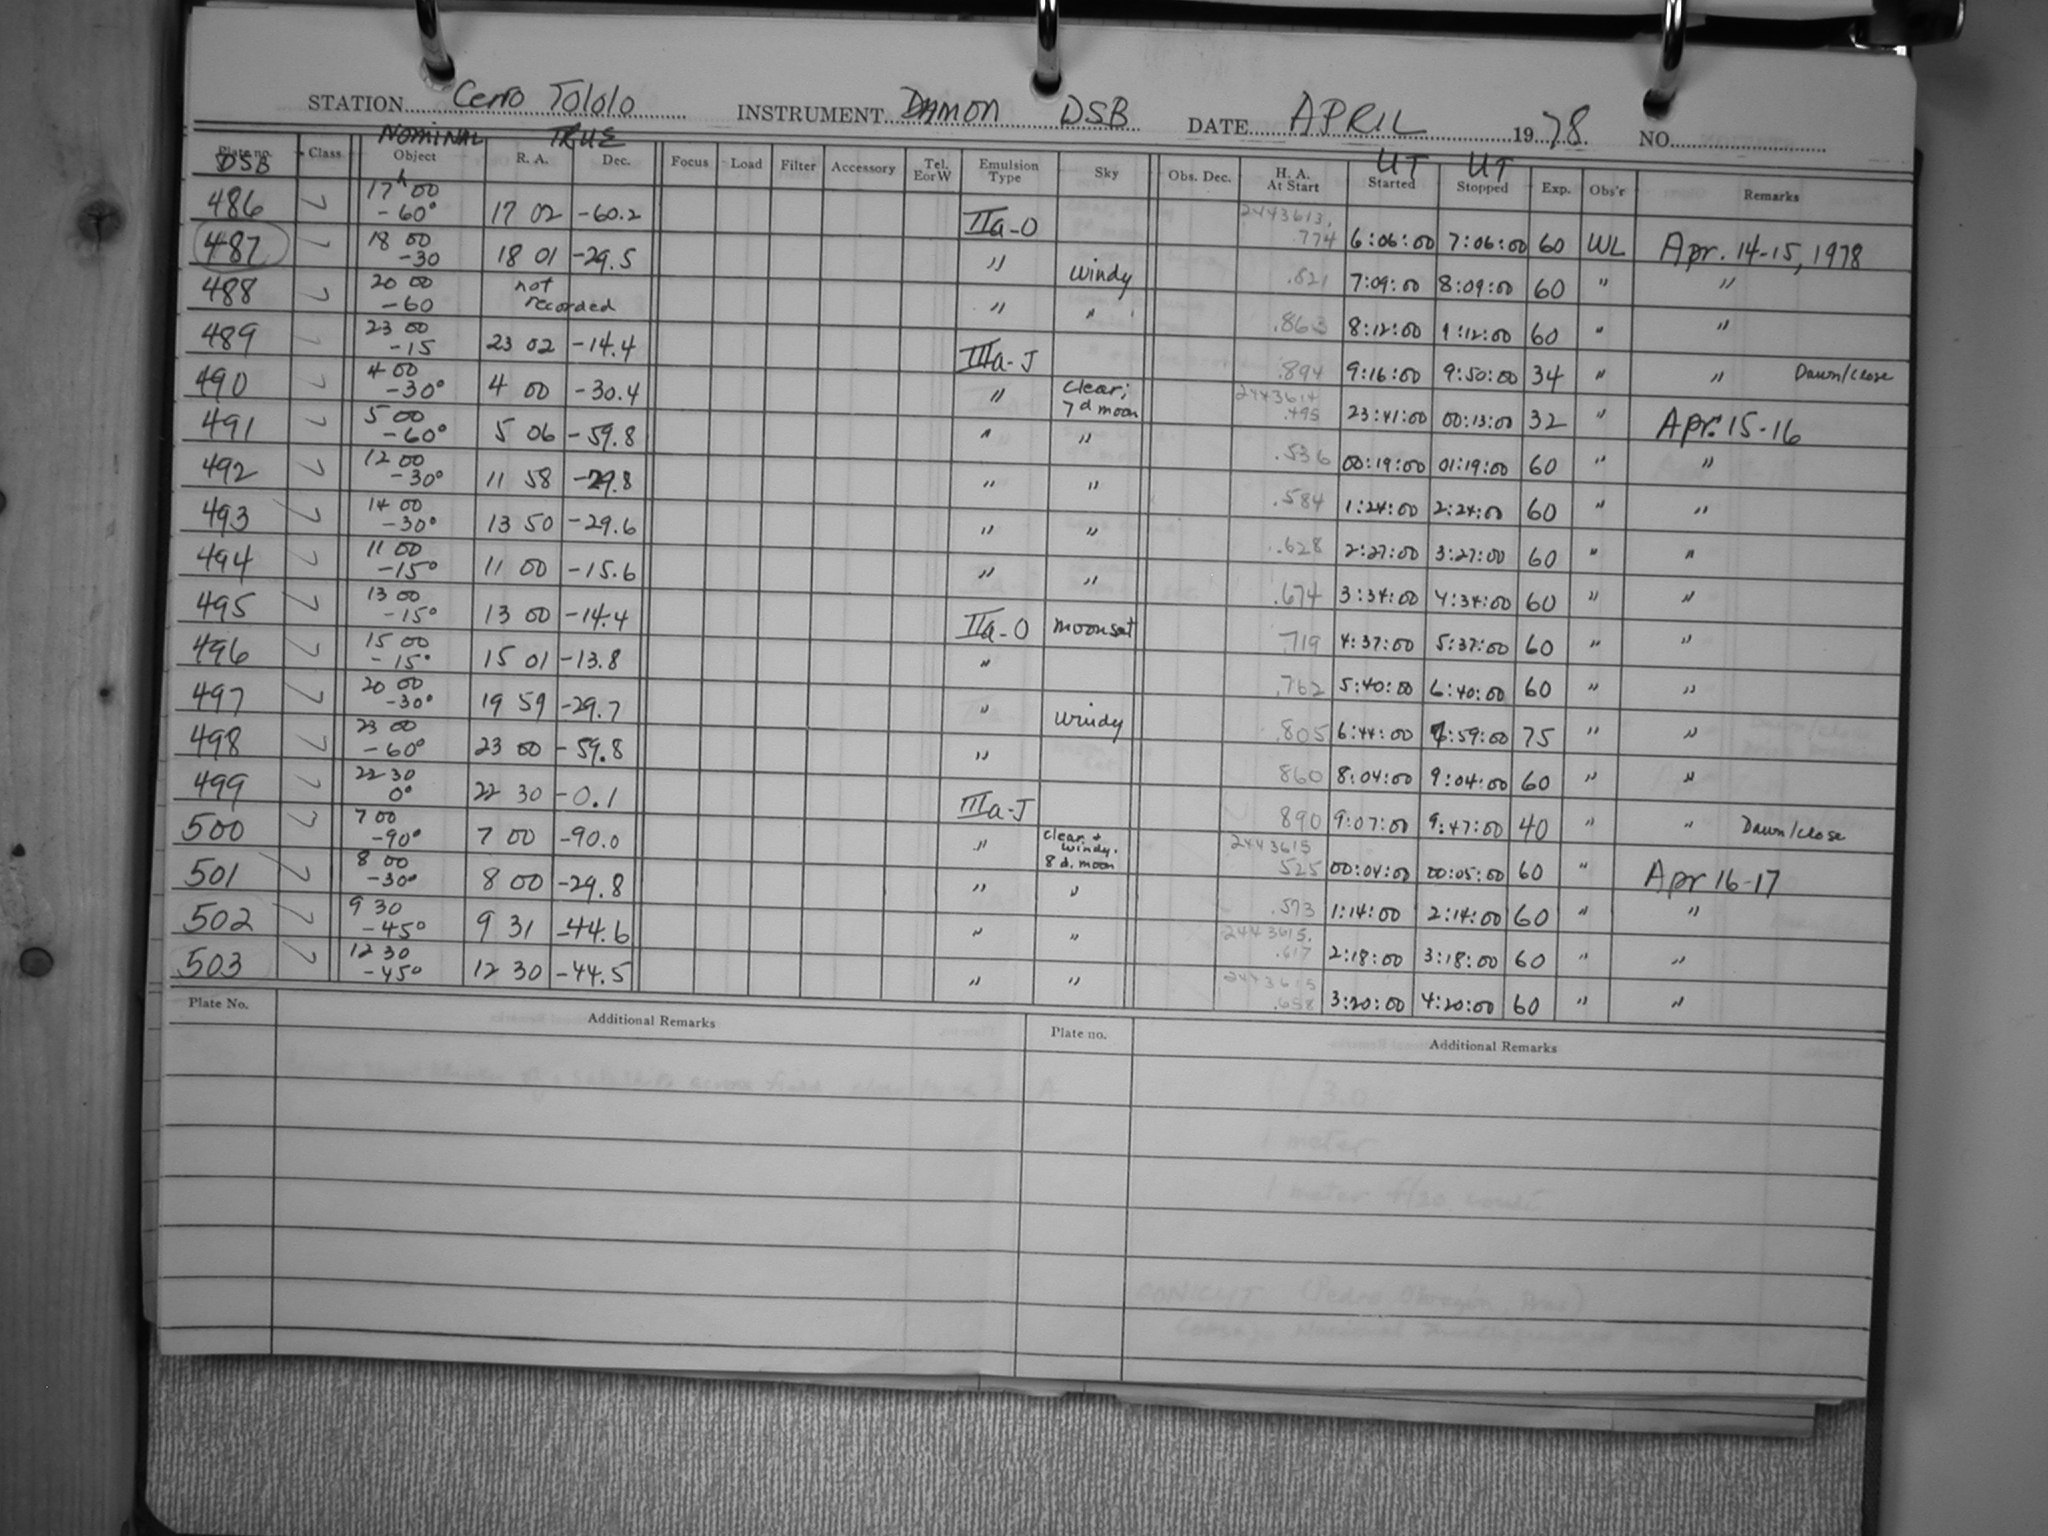 STATION Cerro Tololo INSTRUMENT DAMON DSB DATE APRIL 1978. NO.
NOMINAL TRUE UT UT
Plate no. Class Object R. A. Dec. Focus Load Filter Accessory Tel. EorW Emulsion Type Sky Obs. Dec. H. A. At Start Started Stopped Exp. Obs'r Remarks
DSB
486 7 17h 00 -60° 17 02 -60.2 IIa-O 2443613. .774 6:06:00 7:06:00 60 WL Apr. 14-15, 1978
487 7 18 00 -30 18 01 -29.5 " windy .821 7:09:00 8:09:00 60 " "
488 7 20 00 -60 not recorded " " .863 8:12:00 9:12:00 60 " "
489 7 23 00 -15 23 02 -14.4 IIIa-J .894 9:16:00 9:50:00 34 " " Dawn/close
490 7 4 00 -30° 4 00 -30.4 " clear; 7d moon 2443614 .495 23:41:00 00:13:00 32 " Apr. 15-16
491 7 5 00 -60° 5 06 -59.8 " " .536 00:19:00 01:19:00 60 " "
492 7 12 00 -30° 11 58 -29.8 " " .584 1:24:00 2:24:00 60 " "
493 7 14 00 -30° 13 50 -29.6 " " .628 2:27:00 3:27:00 60 " "
494 7 11 00 -15° 11 00 -15.6 " " .674 3:34:00 4:34:00 60 " "
495 7 13 00 -15° 13 00 -14.4 IIa-O moonset .719 4:37:00 5:37:00 60 " "
496 7 15 00 -15° 15 01 -13.8 " .762 5:40:00 6:40:00 60 " "
497 7 20 00 -30° 19 59 -29.7 " windy .805 6:44:00 7:59:00 75 " "
498 7 23 00 -60° 23 00 -59.8 " 860 8:04:00 9:04:00 60 " "
499 7 22 30 0° 22 30 -0.1 IIIa-J 890 9:07:00 9:47:00 40 " " Dawn/close
500 7 7 00 -90° 7 00 -90.0 " clear + windy. 8 d. moon 2443615 525 00:04:00 00:05:00 60 " Apr 16-17
501 7 8 00 -30° 8 00 -29.8 " " .573 1:14:00 2:14:00 60 " "
502 7 9 30 -45° 9 31 -44.6 " " 2443615. .617 2:18:00 3:18:00 60 " "
503 7 12 30 -45° 12 30 -44.5 " " 2443615 .658 3:20:00 4:20:00 60 " "
Plate No. Additional Remarks Plate no. Additional Remarks